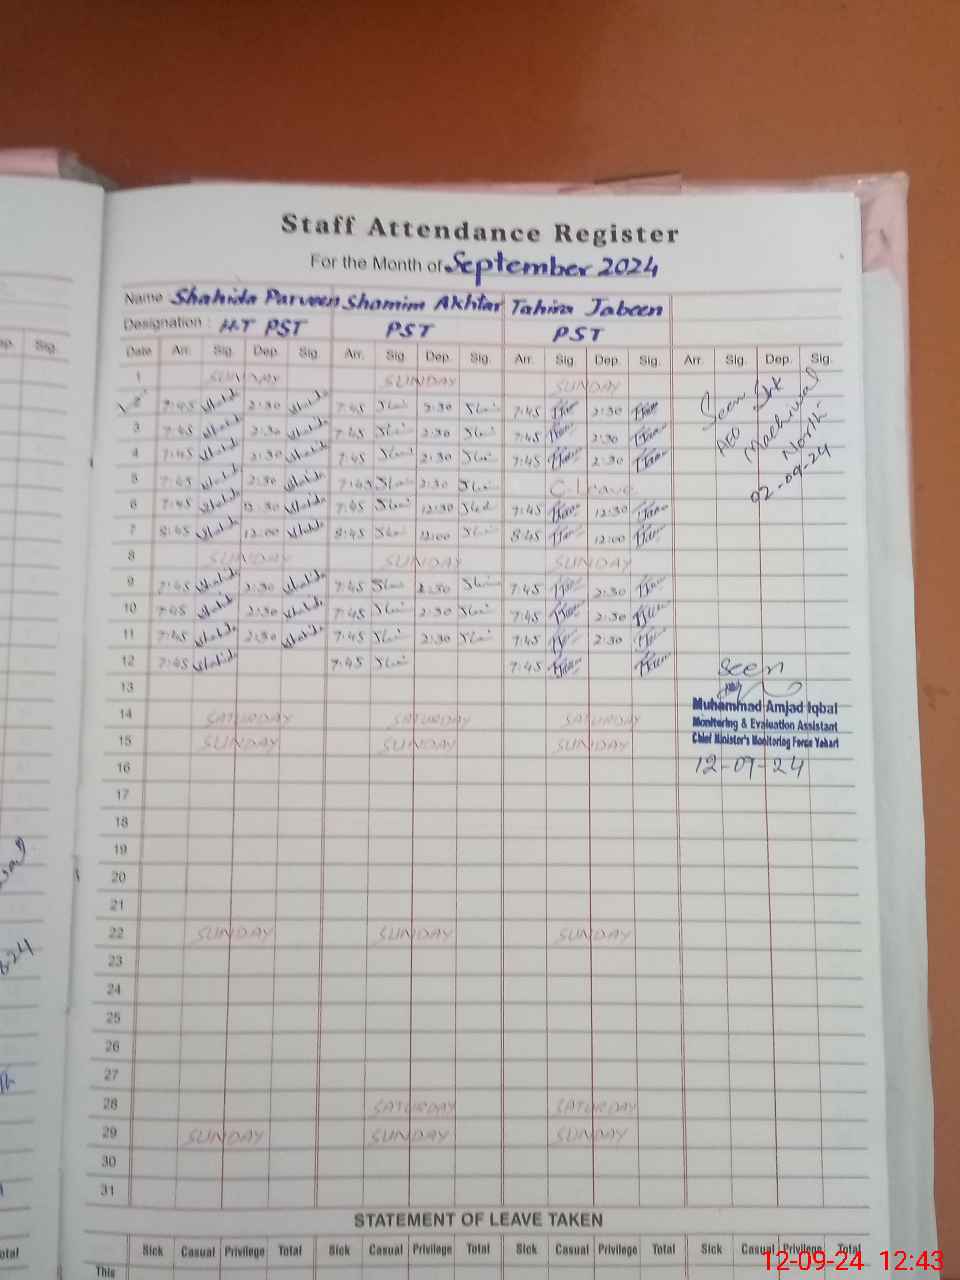 Staff Attendance Register
For the Month of September 2024
Name Shahida Parveen Shamim Akhtar Tahira Jabeen
Designation : H.T PST PST PST
Date Arr. Sig. Dep. Sig Arr. Sig. Dep. Sig. Arr. Sig. Dep. Sig. Arr. Sig. Dep. Sig.
1 SUNDAY SUNDAY SUNDAY
2 7:45 2:30 7:45 2:30 7:45 2:30
3 7:45 2:30 7:45 2:30 7:45 2:30
4 7:45 2:30 7:45 2:30 7:45 2:30
5 7:45 2:30 7:45 2:30 C-leave
6 7:45 12:30 7:45 12:30 7:45 12:30
7 8:45 12:00 8:45 12:00 8:45 12:00
8 SUNDAY SUNDAY SUNDAY
9 7:45 2:30 7:45 2:30 7:45 2:30
10 7:45 2:30 7:45 2:30 7:45 2:30
11 7:45 2:30 7:45 2:30 7:45 2:30
12 7:45 7:45 7:45
13
14 SATURDAY SATURDAY SATURDAY
15 SUNDAY SUNDAY SUNDAY
16
17
18
19
20
21
22 SUNDAY SUNDAY SUNDAY
23
24
25
26
27
28 SATURDAY SATURDAY
29 SUNDAY SUNDAY SUNDAY
30
31
Seen
AEO
Machiwal
North
02-09-24
Seen
Muhammad Amjad Iqbal
Monitoring & Evaluation Assistant
Chief Minister's Monitoring Force Vehari
12-09-24
STATEMENT OF LEAVE TAKEN
Sick Casual Privilege Total Sick Casual Privilege Total Sick Casual Privilege Total Sick Casual Privilege Total
This
12-09-24 12:43